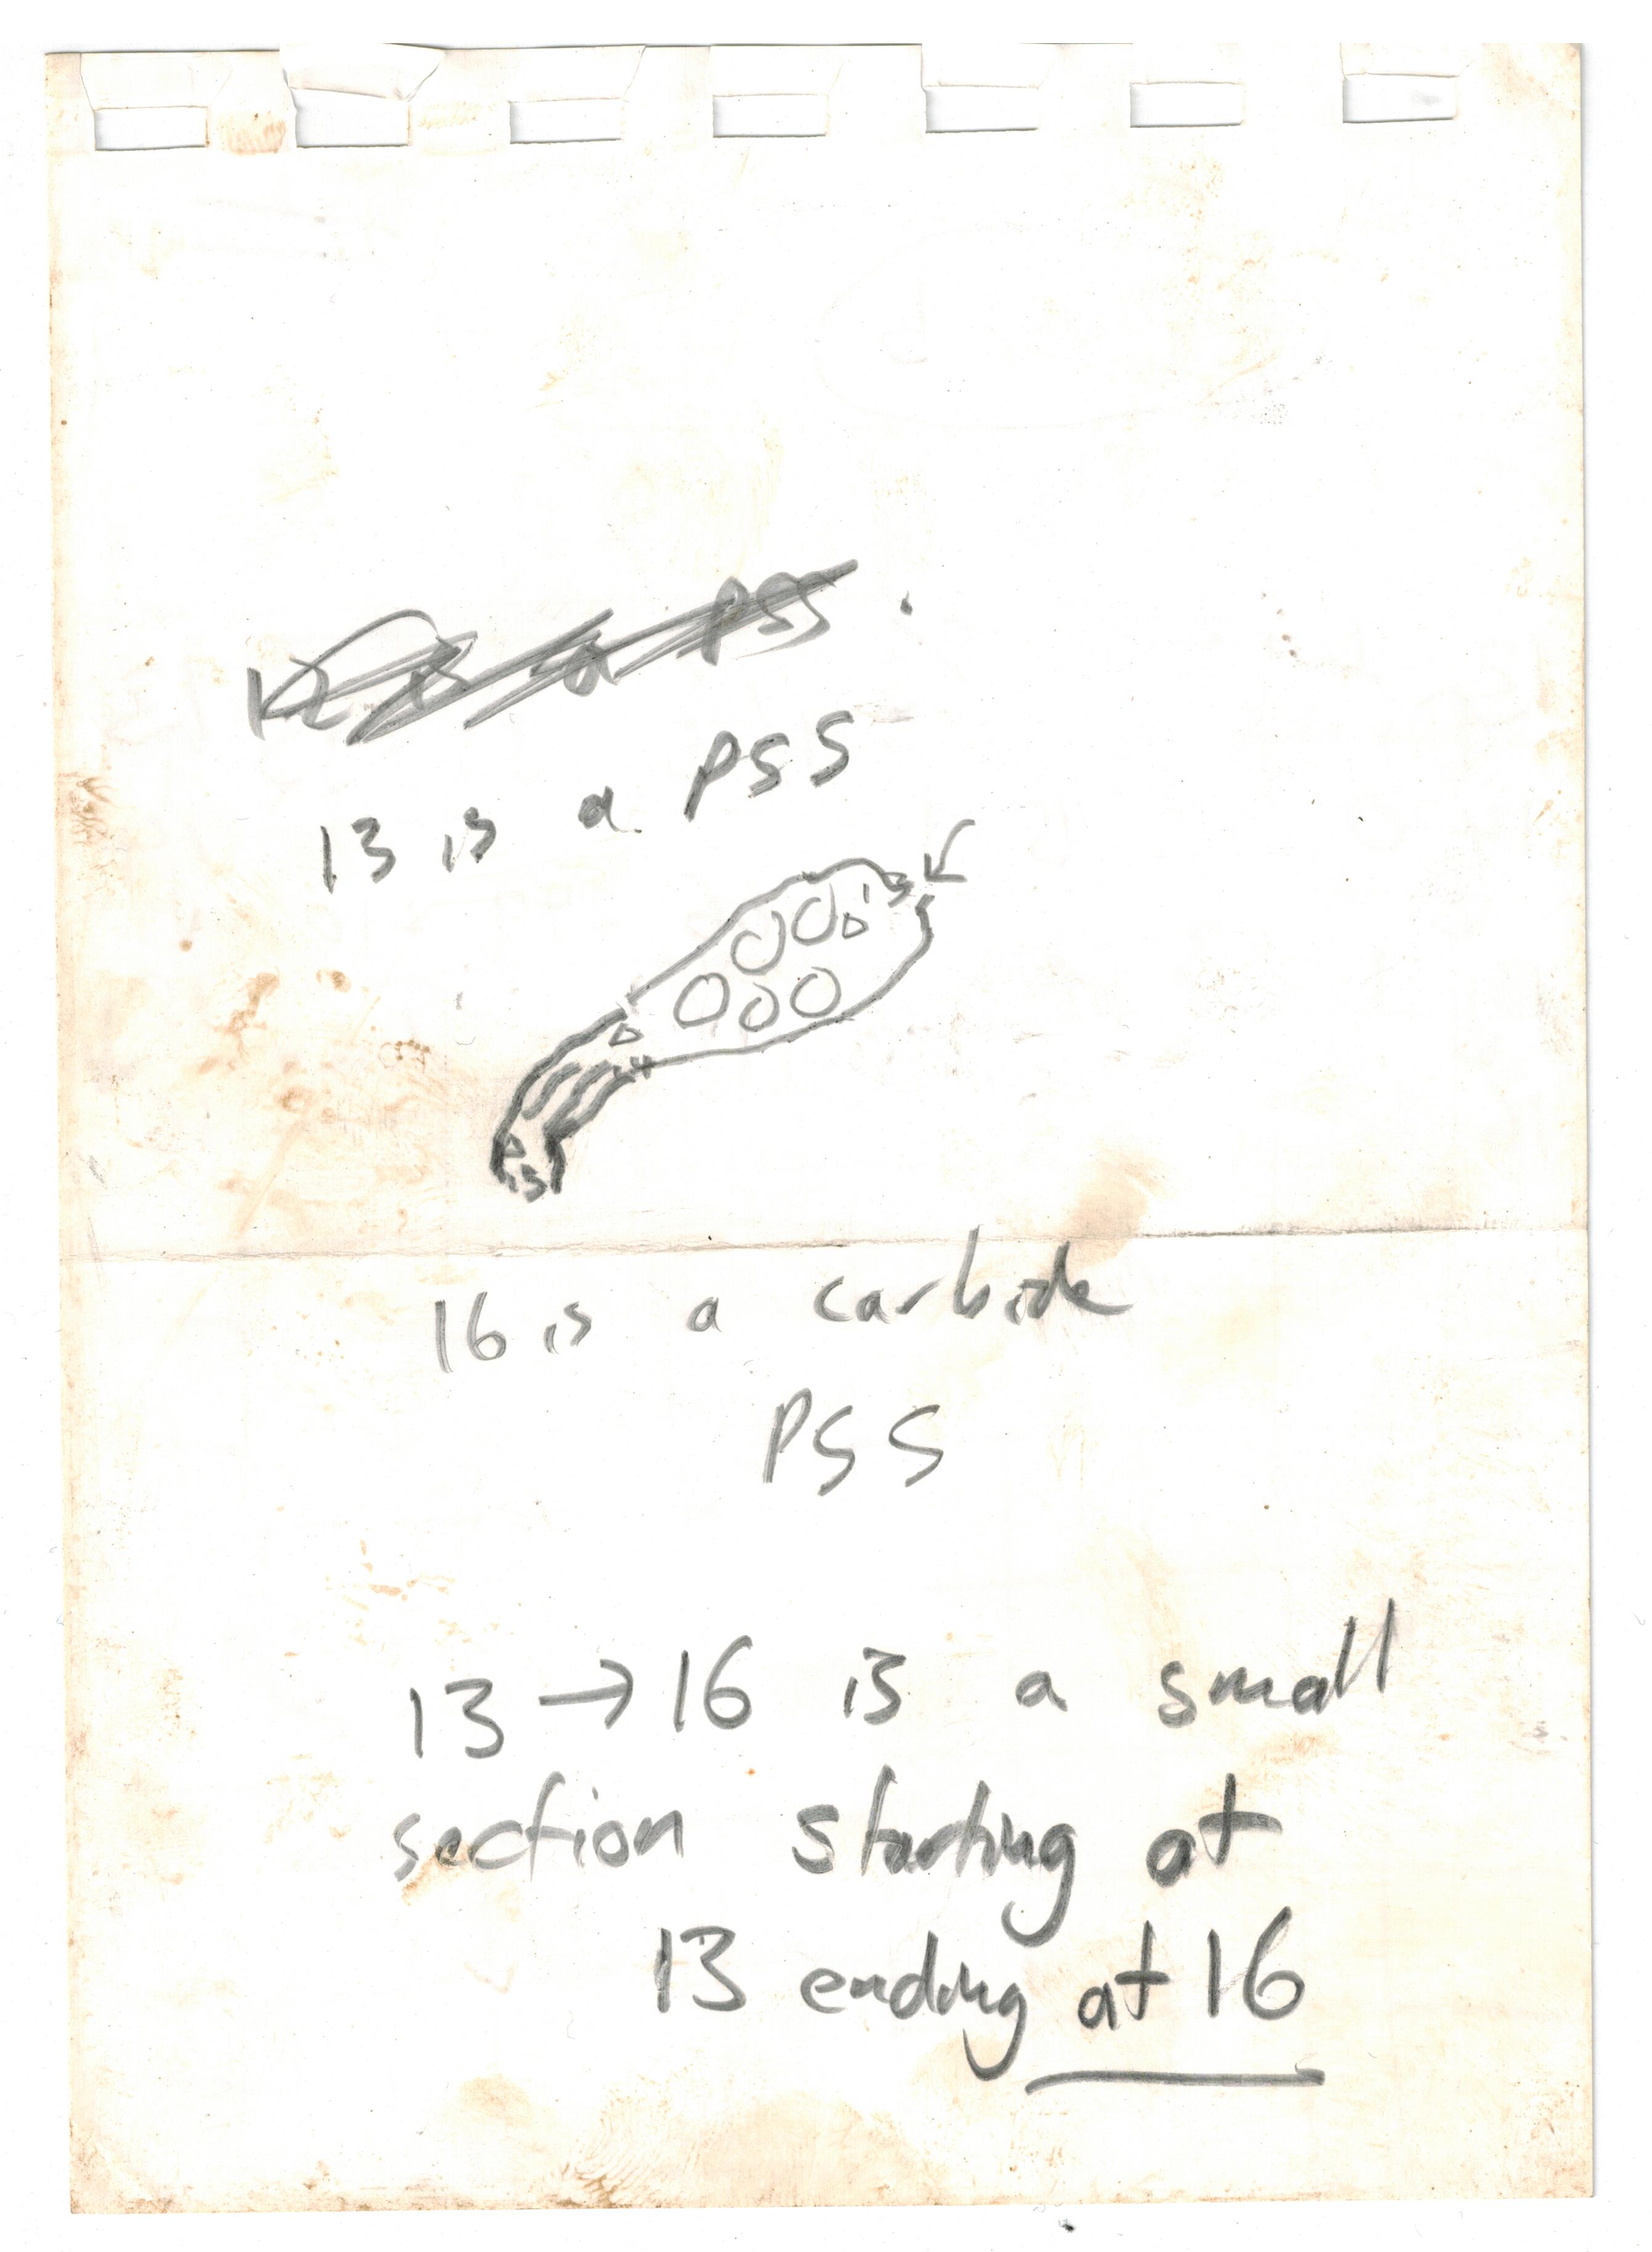 13 is a PSS
13
14
15
16 is a carbide
PSS
13 → 16 is a small
section starting at
13 ending at 16